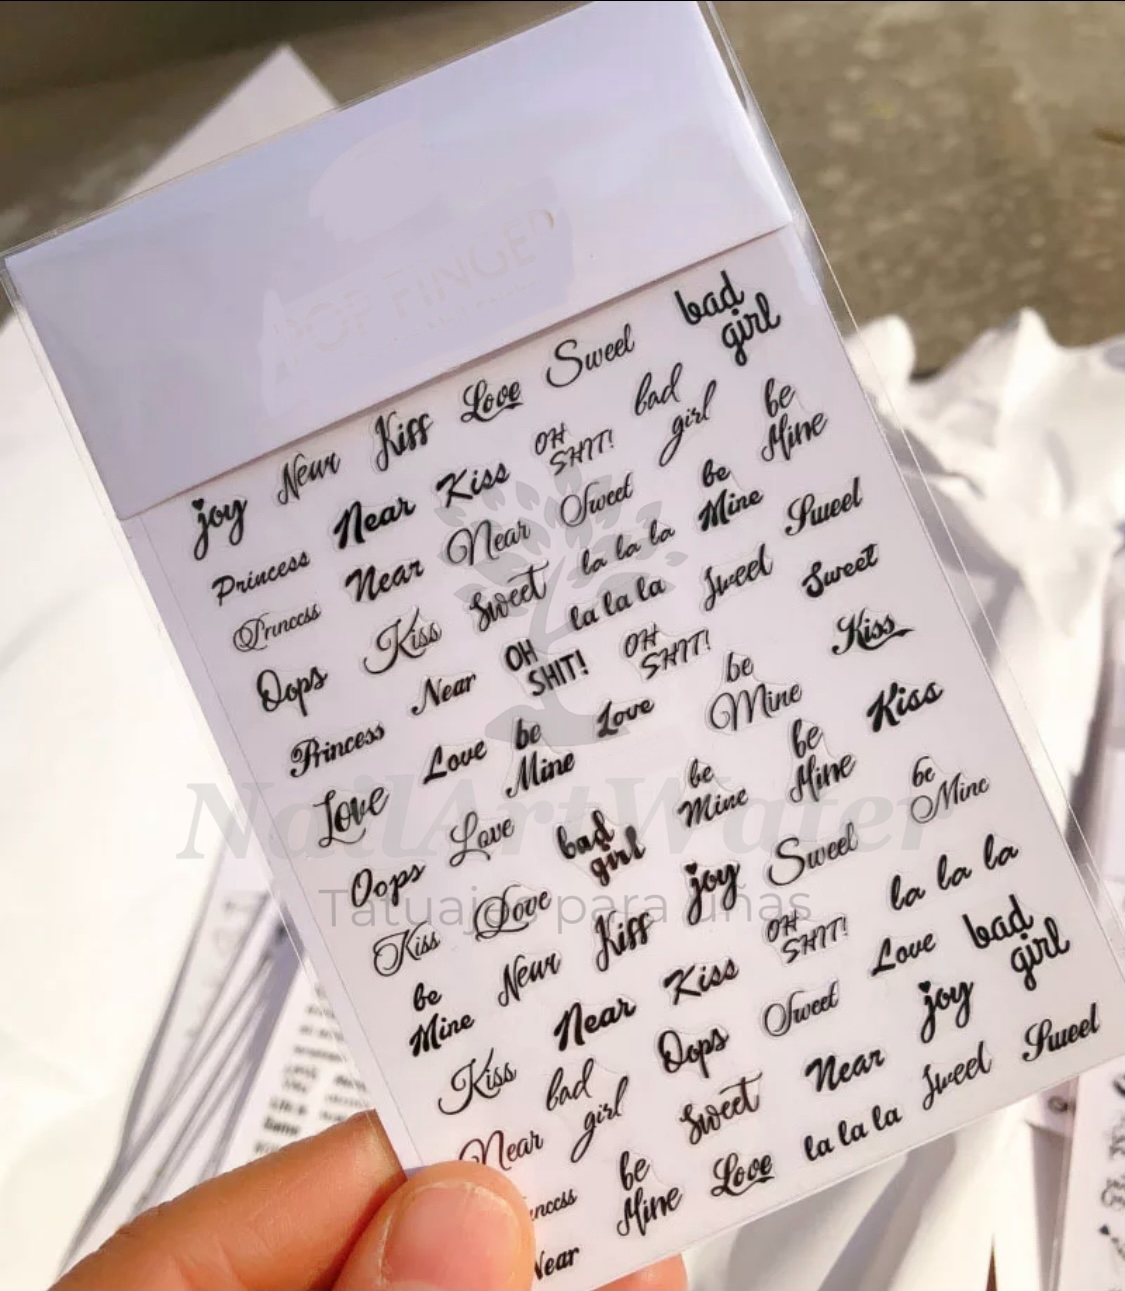 POP FINGER
bad girl
joy Near Kiss Love Sweet
Princess Near Kiss OH SHIT! bad girl be Mine
Princess Near Near Sweet be Mine Sweet
Oops Kiss Sweet la la la
Princess Near OH SHIT! la la la Sweet Sweet
Love Love be Mine Love OH SHIT! be Mine Kiss
Oops Love bad girl be Mine be Mine Kiss
Kiss Love joy Sweet be Mine
be Mine Near Kiss OH SHIT! la la la
Kiss Near Kiss Love bad girl
Near bad girl Oops Sweet joy
Princess be Mine Sweet Near Sweet Sweet
Near Love la la la
NailArtWater
Tatuajes para uñas